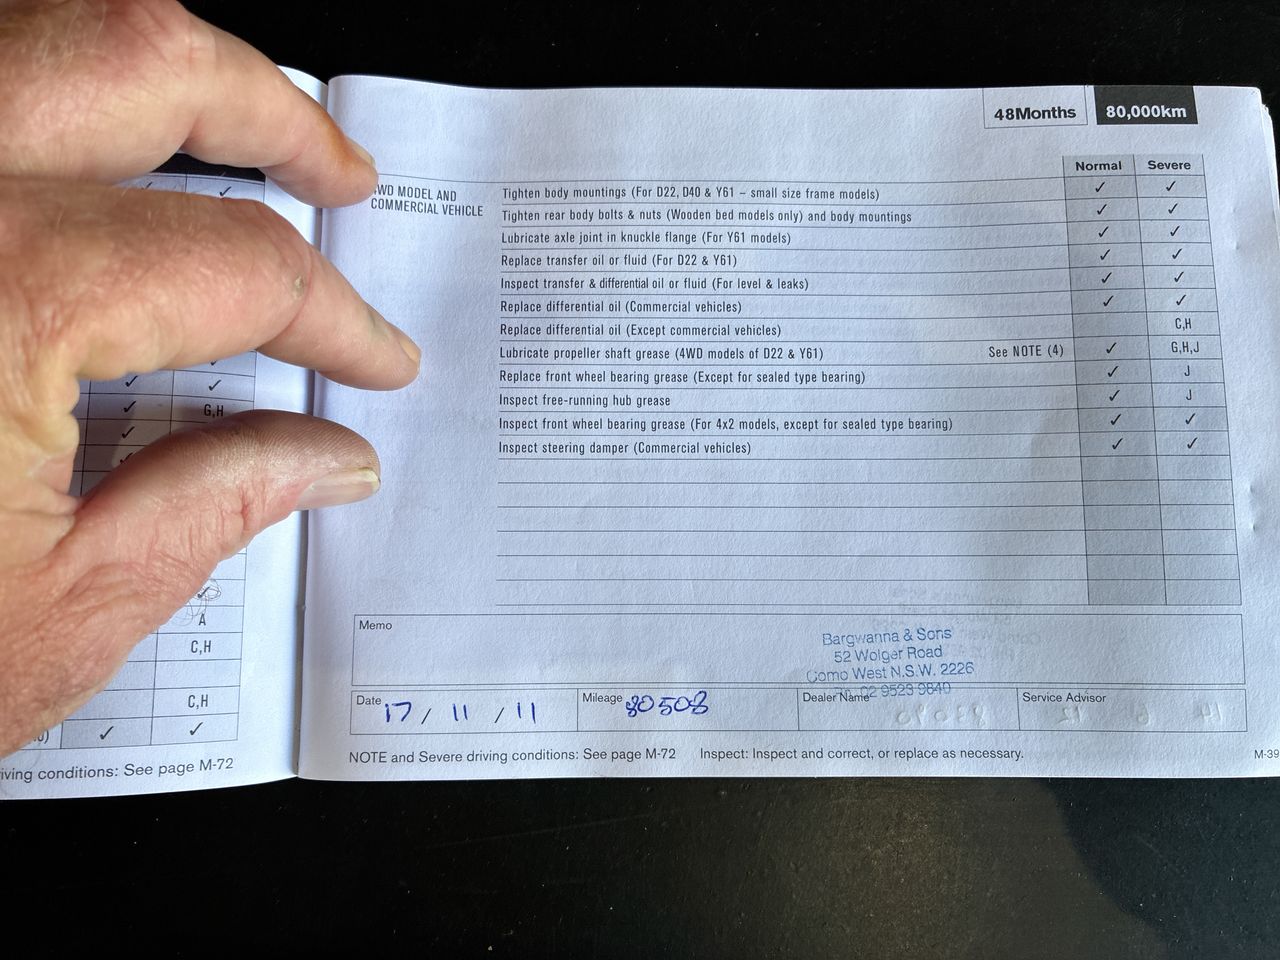 48Months 80,000km
Normal Severe
WD MODEL AND
COMMERCIAL VEHICLE
Tighten body mountings (For D22, D40 & Y61 – small size frame models) ✓ ✓
Tighten rear body bolts & nuts (Wooden bed models only) and body mountings ✓ ✓
Lubricate axle joint in knuckle flange (For Y61 models) ✓ ✓
Replace transfer oil or fluid (For D22 & Y61) ✓ ✓
Inspect transfer & differential oil or fluid (For level & leaks) ✓ ✓
Replace differential oil (Commercial vehicles) ✓ ✓
Replace differential oil (Except commercial vehicles) C,H
Lubricate propeller shaft grease (4WD models of D22 & Y61) See NOTE (4) ✓ G,H,J
Replace front wheel bearing grease (Except for sealed type bearing) ✓ J
Inspect free-running hub grease ✓ J
Inspect front wheel bearing grease (For 4x2 models, except for sealed type bearing) ✓ ✓
Inspect steering damper (Commercial vehicles) ✓ ✓
Memo
Bargwanna & Sons
52 Wolger Road
Como West N.S.W. 2226
02 9523 9840
Date 17 / 11 / 11 Mileage 80508 Dealer Name Service Advisor
NOTE and Severe driving conditions: See page M-72 Inspect: Inspect and correct, or replace as necessary.
M-39
G,H
A
C,H
C,H
✓ ✓
iving conditions: See page M-72